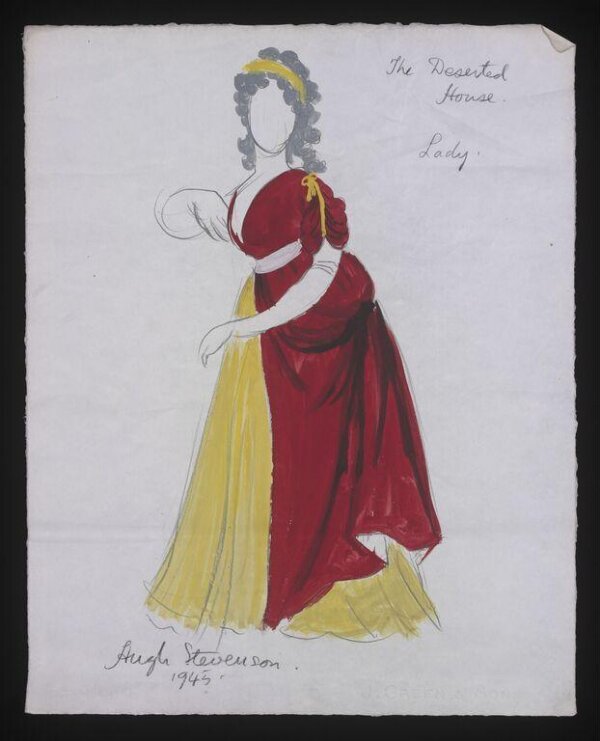 The Deserted
House.
Lady.
Hugh Stevenson.
1945.